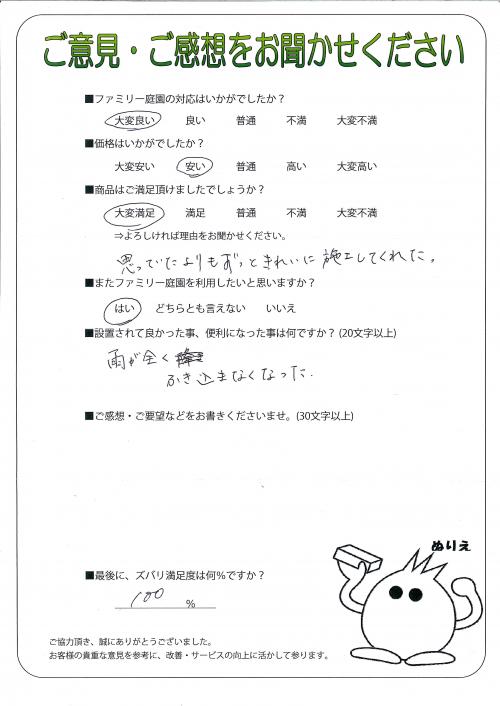 ご意見・ご感想をお聞かせください
■ファミリー庭園の対応はいかがでしたか？
大変良い 良い 普通 不満 大変不満
■価格はいかがでしたか？
大変安い 安い 普通 高い 大変高い
■商品はご満足頂けましたでしょうか？
大変満足 満足 普通 不満 大変不満
⇒よろしければ理由をお聞かせください。
思っていたよりもずっときれいに施工してくれた。
■またファミリー庭園を利用したいと思いますか？
はい どちらとも言えない いいえ
■設置されて良かった事、便利になった事は何ですか？(20文字以上)
雨が全く
ふき込まなくなった.
■ご感想・ご要望などをお書きくださいませ。(30文字以上)
ぬりえ
■最後に、ズバリ満足度は何%ですか？
100 %
ご協力頂き、誠にありがとうございました。
お客様の貴重な意見を参考に、改善・サービスの向上に活かして参ります。